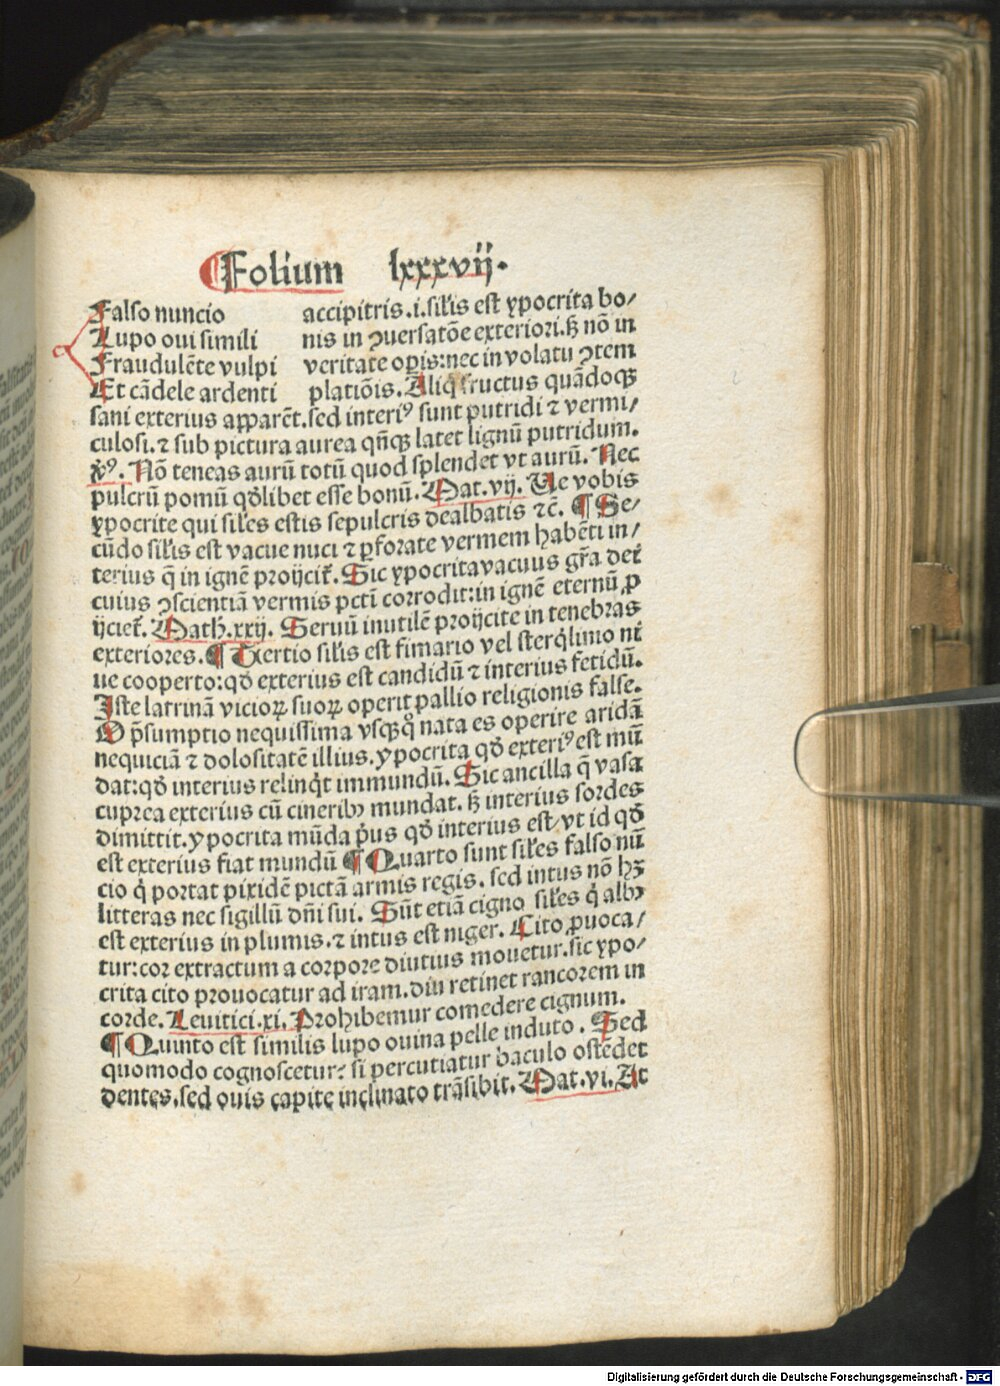 Folium lxxxvij.
Falso nuncio accipitris.i.sił̕is est ypocrita bo/
Lupo oui simili nis in ꝯuersatōe exteriori.sꝫ nō in
Fraudulēte vulpi veritate oꝑis:nec in volatu ꝯtem
Et cādele ardenti platiōis. Aliq̄ fructus quādoqꝫ
sani exterius apparēt.sed interiꝰ sunt putridi ⁊ vermi/
culosi.⁊ sub pictura aurea qn̄qꝫ latet lignū putridum.
v̓ꝰ. Nō teneas aurū totū quod splendet vt aurū. Nec
pulcrū pomū qđlibet esse bonū. Mat.vij. Ue vobis
ypocrite qui sił̕es estis sepulcris dealbatis ⁊c̄. ¶ Se/
cūdo sił̕is est vacue nuci ⁊ ꝑforate vermem habēti in/
terius q̄ in ignē proijcit᷑. Sic ypocrita vacuus gr̄a dei
cuius ꝯscientiā vermis pctī corrodit:in ignē eternū ꝓ
ijciet᷑. Math.xxij. Seruū inutilē proijcite in tenebras
exteriores. ¶ Tertio sił̕is est fimario vel sterq̇linio ni
ue cooperto:qđ exterius est candidū ⁊ interius fetidū.
Iste latrinā vicioꝝ suoꝝ operit pallio religionis false.
O p̄sumptio nequissima vsqꝫq̊ nata es operire aridā
nequiciā ⁊ dolositatē illius.ypocrita qđ exteriꝰ est mū
dat:qđ interius relinq̇t immundū. Sic ancilla q̄ vasa
cuprea exterius cū cineribꝫ mundat. sꝫ interius sordes
dimittit. ypocrita mūda pͥus qđ interius est vt id qđ
est exterius fiat mundū ¶ Quarto sunt sił̕es falso nū
cio q̇ portat pixidē pictā armis regis. sed intus nō hꝫ
litteras nec sigillū dn̄i sui. Sūt etiā cigno sił̕es q̇ albꝰ
est exterius in plumis.⁊ intus est niger. Cito ꝓuoca/
tur:cor extractum a corpore diutius mouetur.sic ypo/
crita cito prouocatur ad iram.diu retinet rancorem in
corde. Leuitici.xi. Prohibemur comedere cignum.
¶ Quinto est similis lupo ouina pelle induto. Sed
quomodo cognoscetur: si percutiatur baculo ostēdet
dentes.sed ouis capite inclinato trāsibit. Mat.vi. At
Digitalisierung gefördert durch die Deutsche Forschungsgemeinschaft - DFG